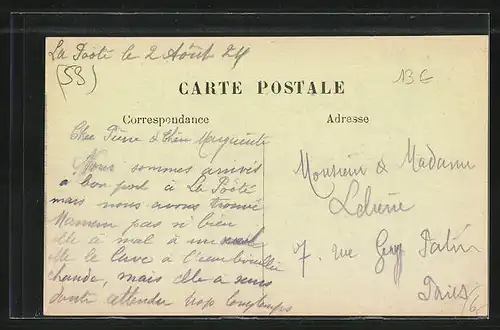 La Pôôté le 2 Août 24
(53)
13 E
CARTE POSTALE
Correspondance
Adresse
Cher Pierre & Chère Marguerite
Nous sommes arrivés
à bon port à La Pôôté
mais nous avons trouvé
Maman pas si bien
elle a mal à un
elle le lave à l'eau bouillie
chaude, mais elle a sans
doute attendu trop longtemps
Monsieur & Madame
7. rue Guy Patin
Paris